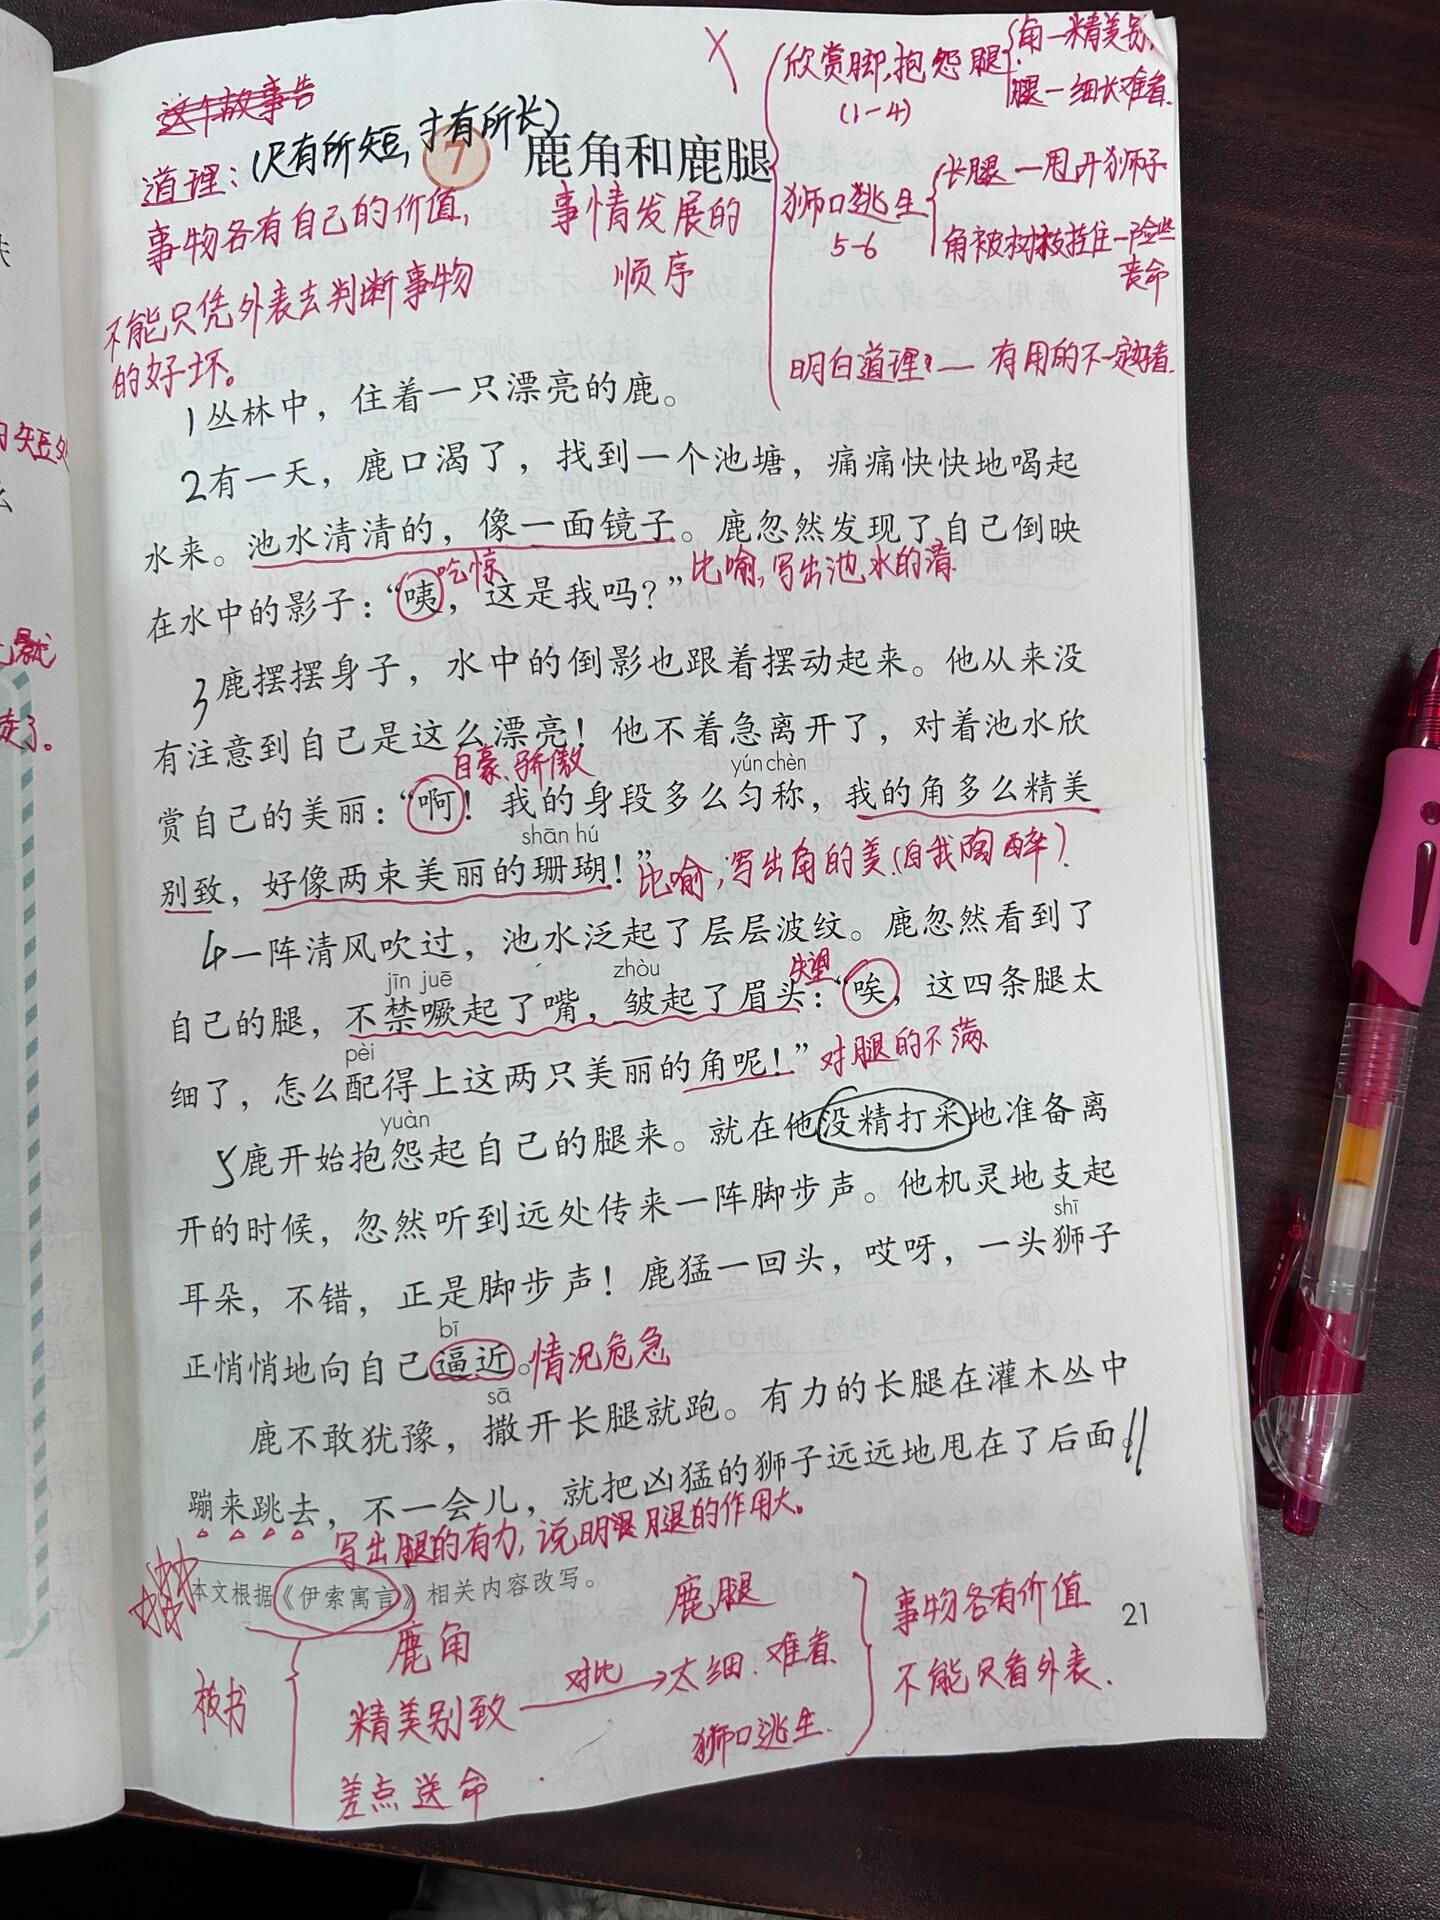 这个故事告
道理：(尺有所短，寸有所长)
事物各有自己的价值，
不能只凭外表去判断事物
的好坏。
7 鹿角和鹿腿
事情发展的
顺序
欣赏脚，抱怨腿
(1-4)
角—精美别
腿—细长难看
狮口逃生
5-6
长腿—甩开狮子
角被树枝挂住—险些
丧命
明白道理：— 有用的不一定好看
1丛林中，住着一只漂亮的鹿。
2有一天，鹿口渴了，找到一个池塘，痛痛快快地喝起
水来。池水清清的，像一面镜子。鹿忽然发现了自己倒映
吃惊
比喻，写出池水的清
在水中的影子：“咦，这是我吗？”
3鹿摆摆身子，水中的倒影也跟着摆动起来。他从来没
有注意到自己是这么漂亮！他不着急离开了，对着池水欣
自豪、骄傲
yún chèn
赏自己的美丽：“啊！我的身段多么匀称，我的角多么精美
shān hú
别致，好像两束美丽的珊瑚！”
比喻，写出角的美(自我陶醉)
4一阵清风吹过，池水泛起了层层波纹。鹿忽然看到了
jīn juē
zhòu
失望
自己的腿，不禁噘起了嘴，皱起了眉头：“唉，这四条腿太
pèi
细了，怎么配得上这两只美丽的角呢！”
对腿的不满
yuàn
5鹿开始抱怨起自己的腿来。就在他没精打采地准备离
开的时候，忽然听到远处传来一阵脚步声。他机灵地支起
shī
耳朵，不错，正是脚步声！鹿猛一回头，哎呀，一头狮子
bī
正悄悄地向自己逼近。
情况危急
sā
鹿不敢犹豫，撒开长腿就跑。有力的长腿在灌木丛中
蹦来跳去，不一会儿，就把凶猛的狮子远远地甩在了后面。
写出腿的有力，说明腿的作用大。
本文根据《伊索寓言》相关内容改写。
21
板书
鹿角
精美别致
差点送命
对比
鹿腿
太细、难看
狮口逃生
事物各有价值
不能只看外表.